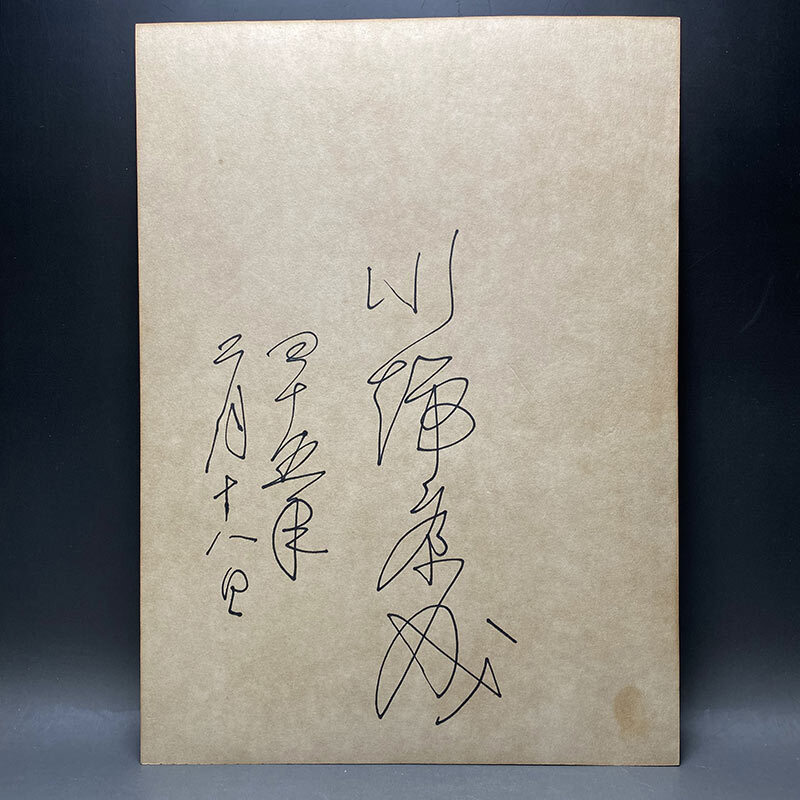 川端康成
四十五年
二月十八日